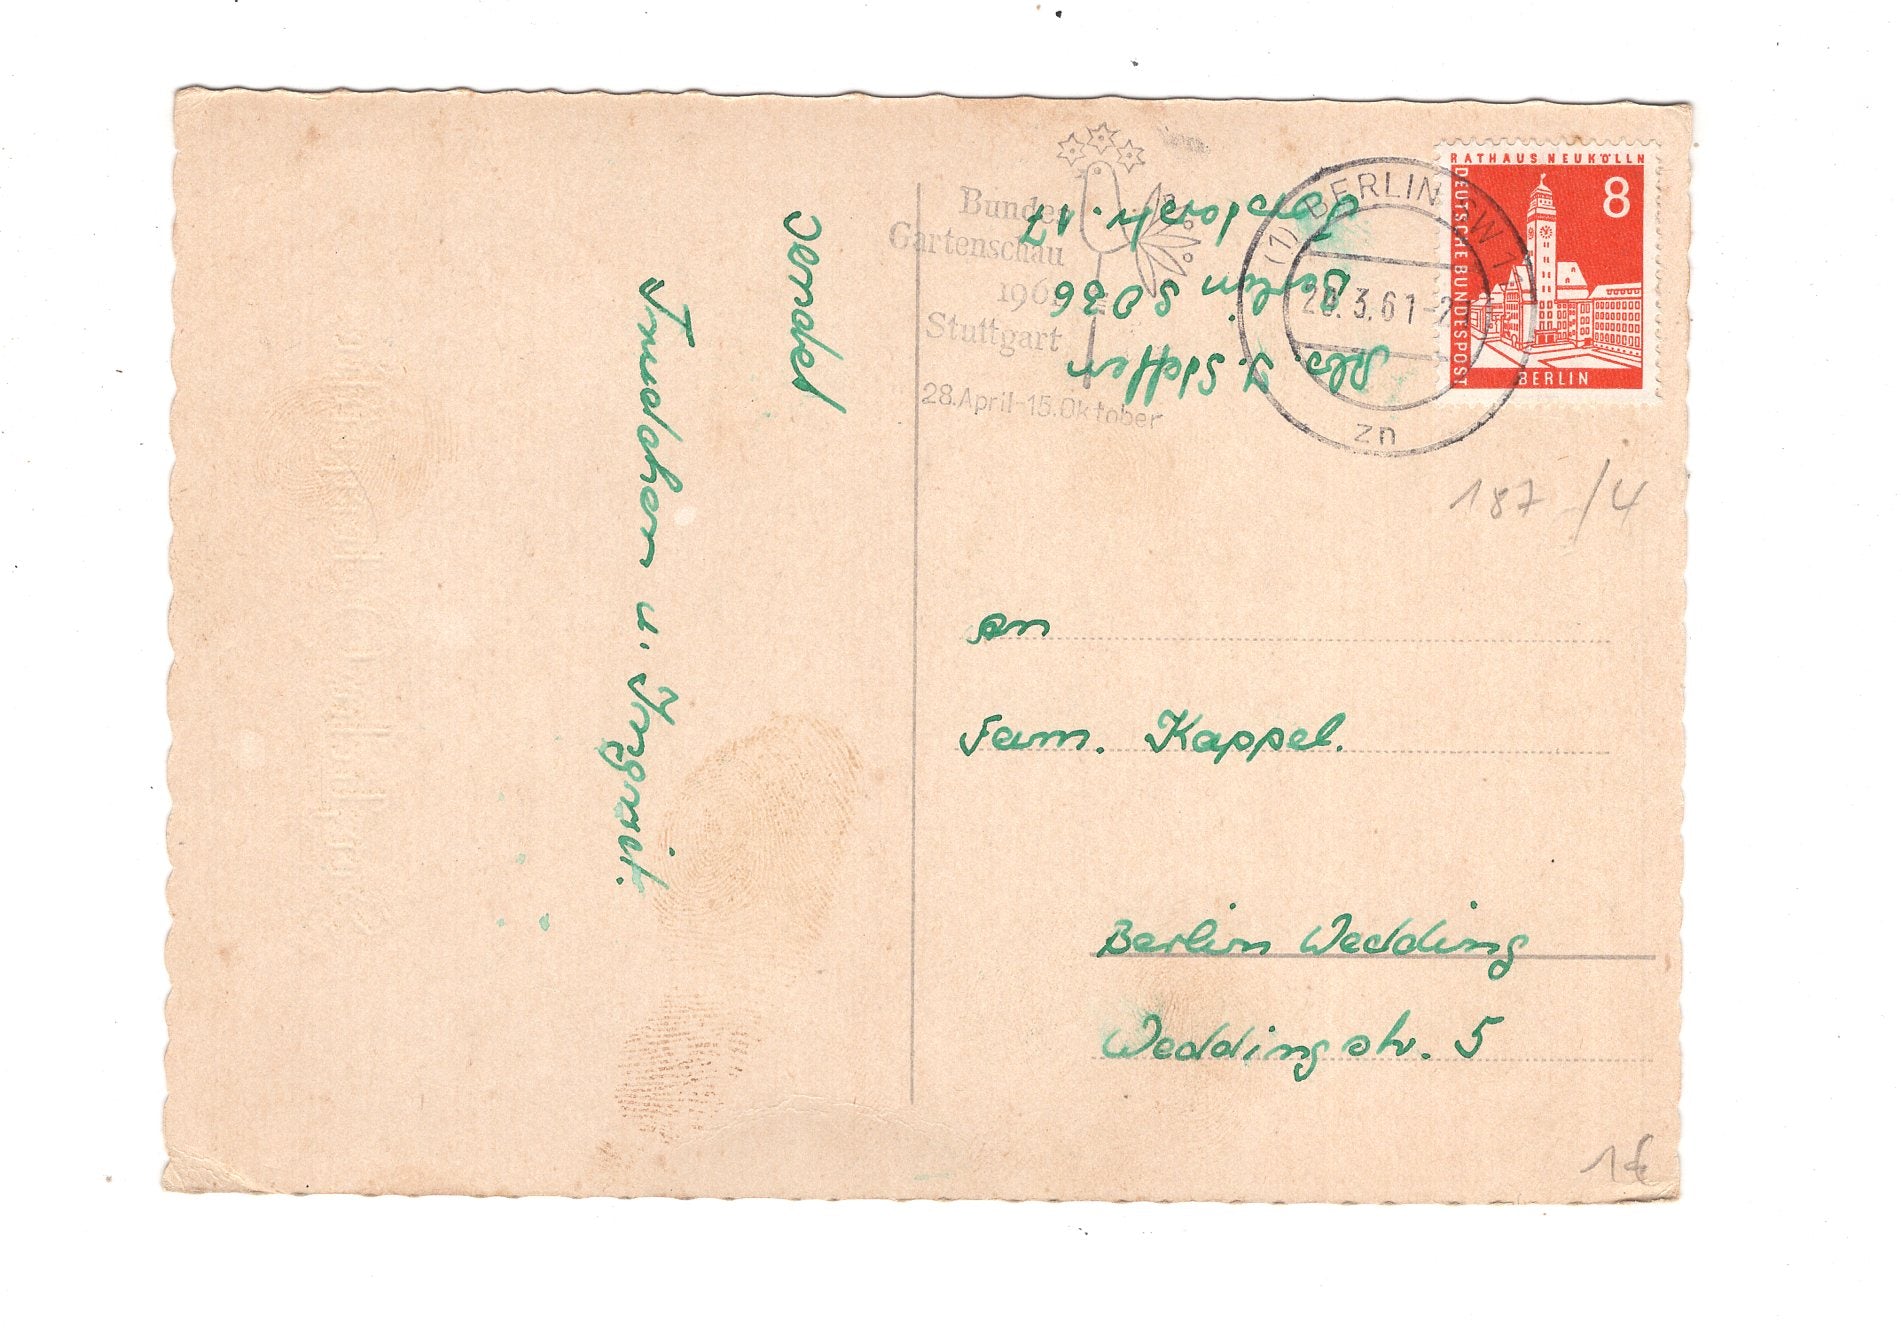 sendet
Trudchen u. Irgmit.
Bundes
Gartenschau
1961
Stuttgart
28.April-15.Oktober
(1) BERLIN SW 11
.3.61-2
zn
RATHAUS NEUKÖLLN
DEUTSCHE BUNDESPOST
8
BERLIN
Abs. J. Steffen
Berlin SO 36
str. 17
187 /4
an
Fam. Kappel.
Berlin Wedding
Weddingstr. 5
1€